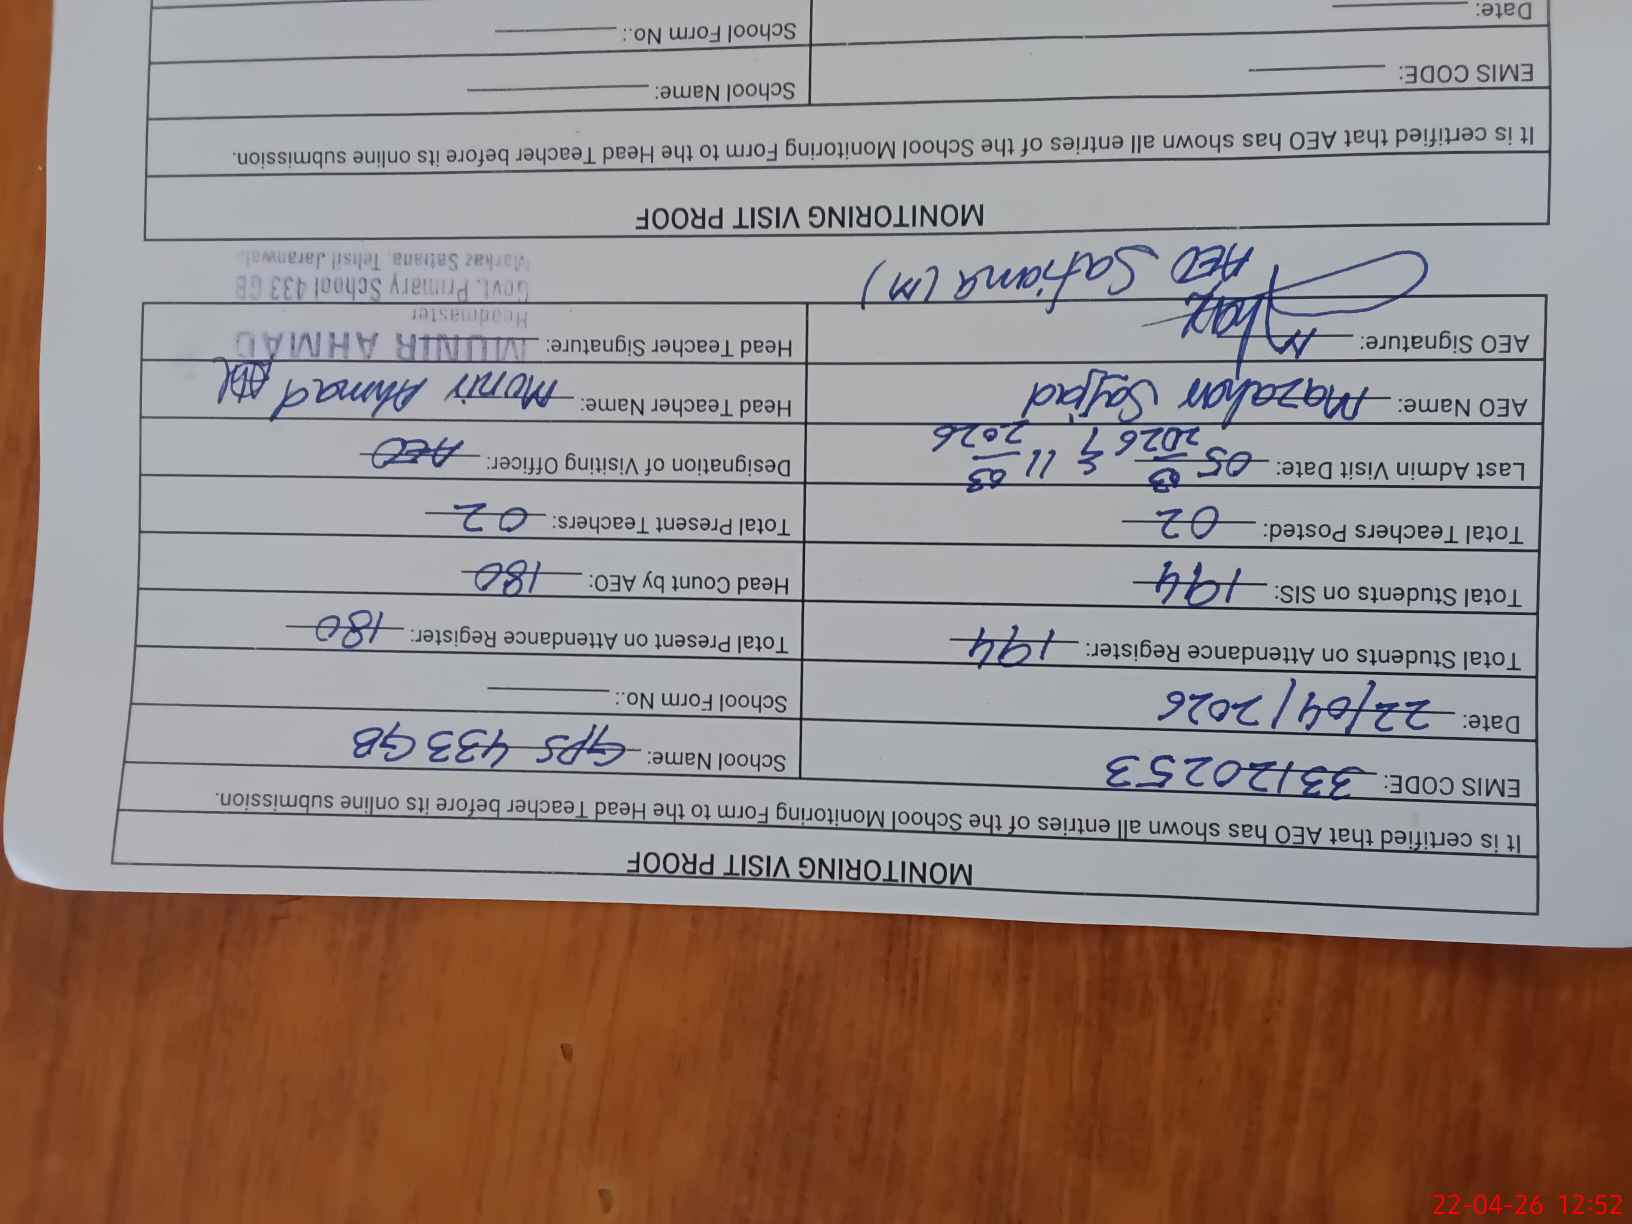 MONITORING VISIT PROOF
It is certified that AEO has shown all entries of the School Monitoring Form to the Head Teacher before its online submission.
EMIS CODE: 33120253 School Name: GPS 433 GB
Date: 22/04/2026 School Form No.:
Total Students on Attendance Register: 194 Total Present on Attendance Register: 180
Total Students on SIS: 194 Head Count by AEO: 180
Total Teachers Posted: 02 Total Present Teachers: 02
Last Admin Visit Date: 05 03 2026 & 11 03 2026 Designation of Visiting Officer: AEO
AEO Name: Mazahar Sajjad Head Teacher Name: Munir Ahmad
AEO Signature: Head Teacher Signature: MUNIR AHMAD
Headmaster
AEO Satiana (M) Govt. Primary School 433 GB
Markaz Satiana, Tehsil Jaranwala
MONITORING VISIT PROOF
It is certified that AEO has shown all entries of the School Monitoring Form to the Head Teacher before its online submission.
EMIS CODE: School Name:
Date: School Form No.:
22-04-26 12:52